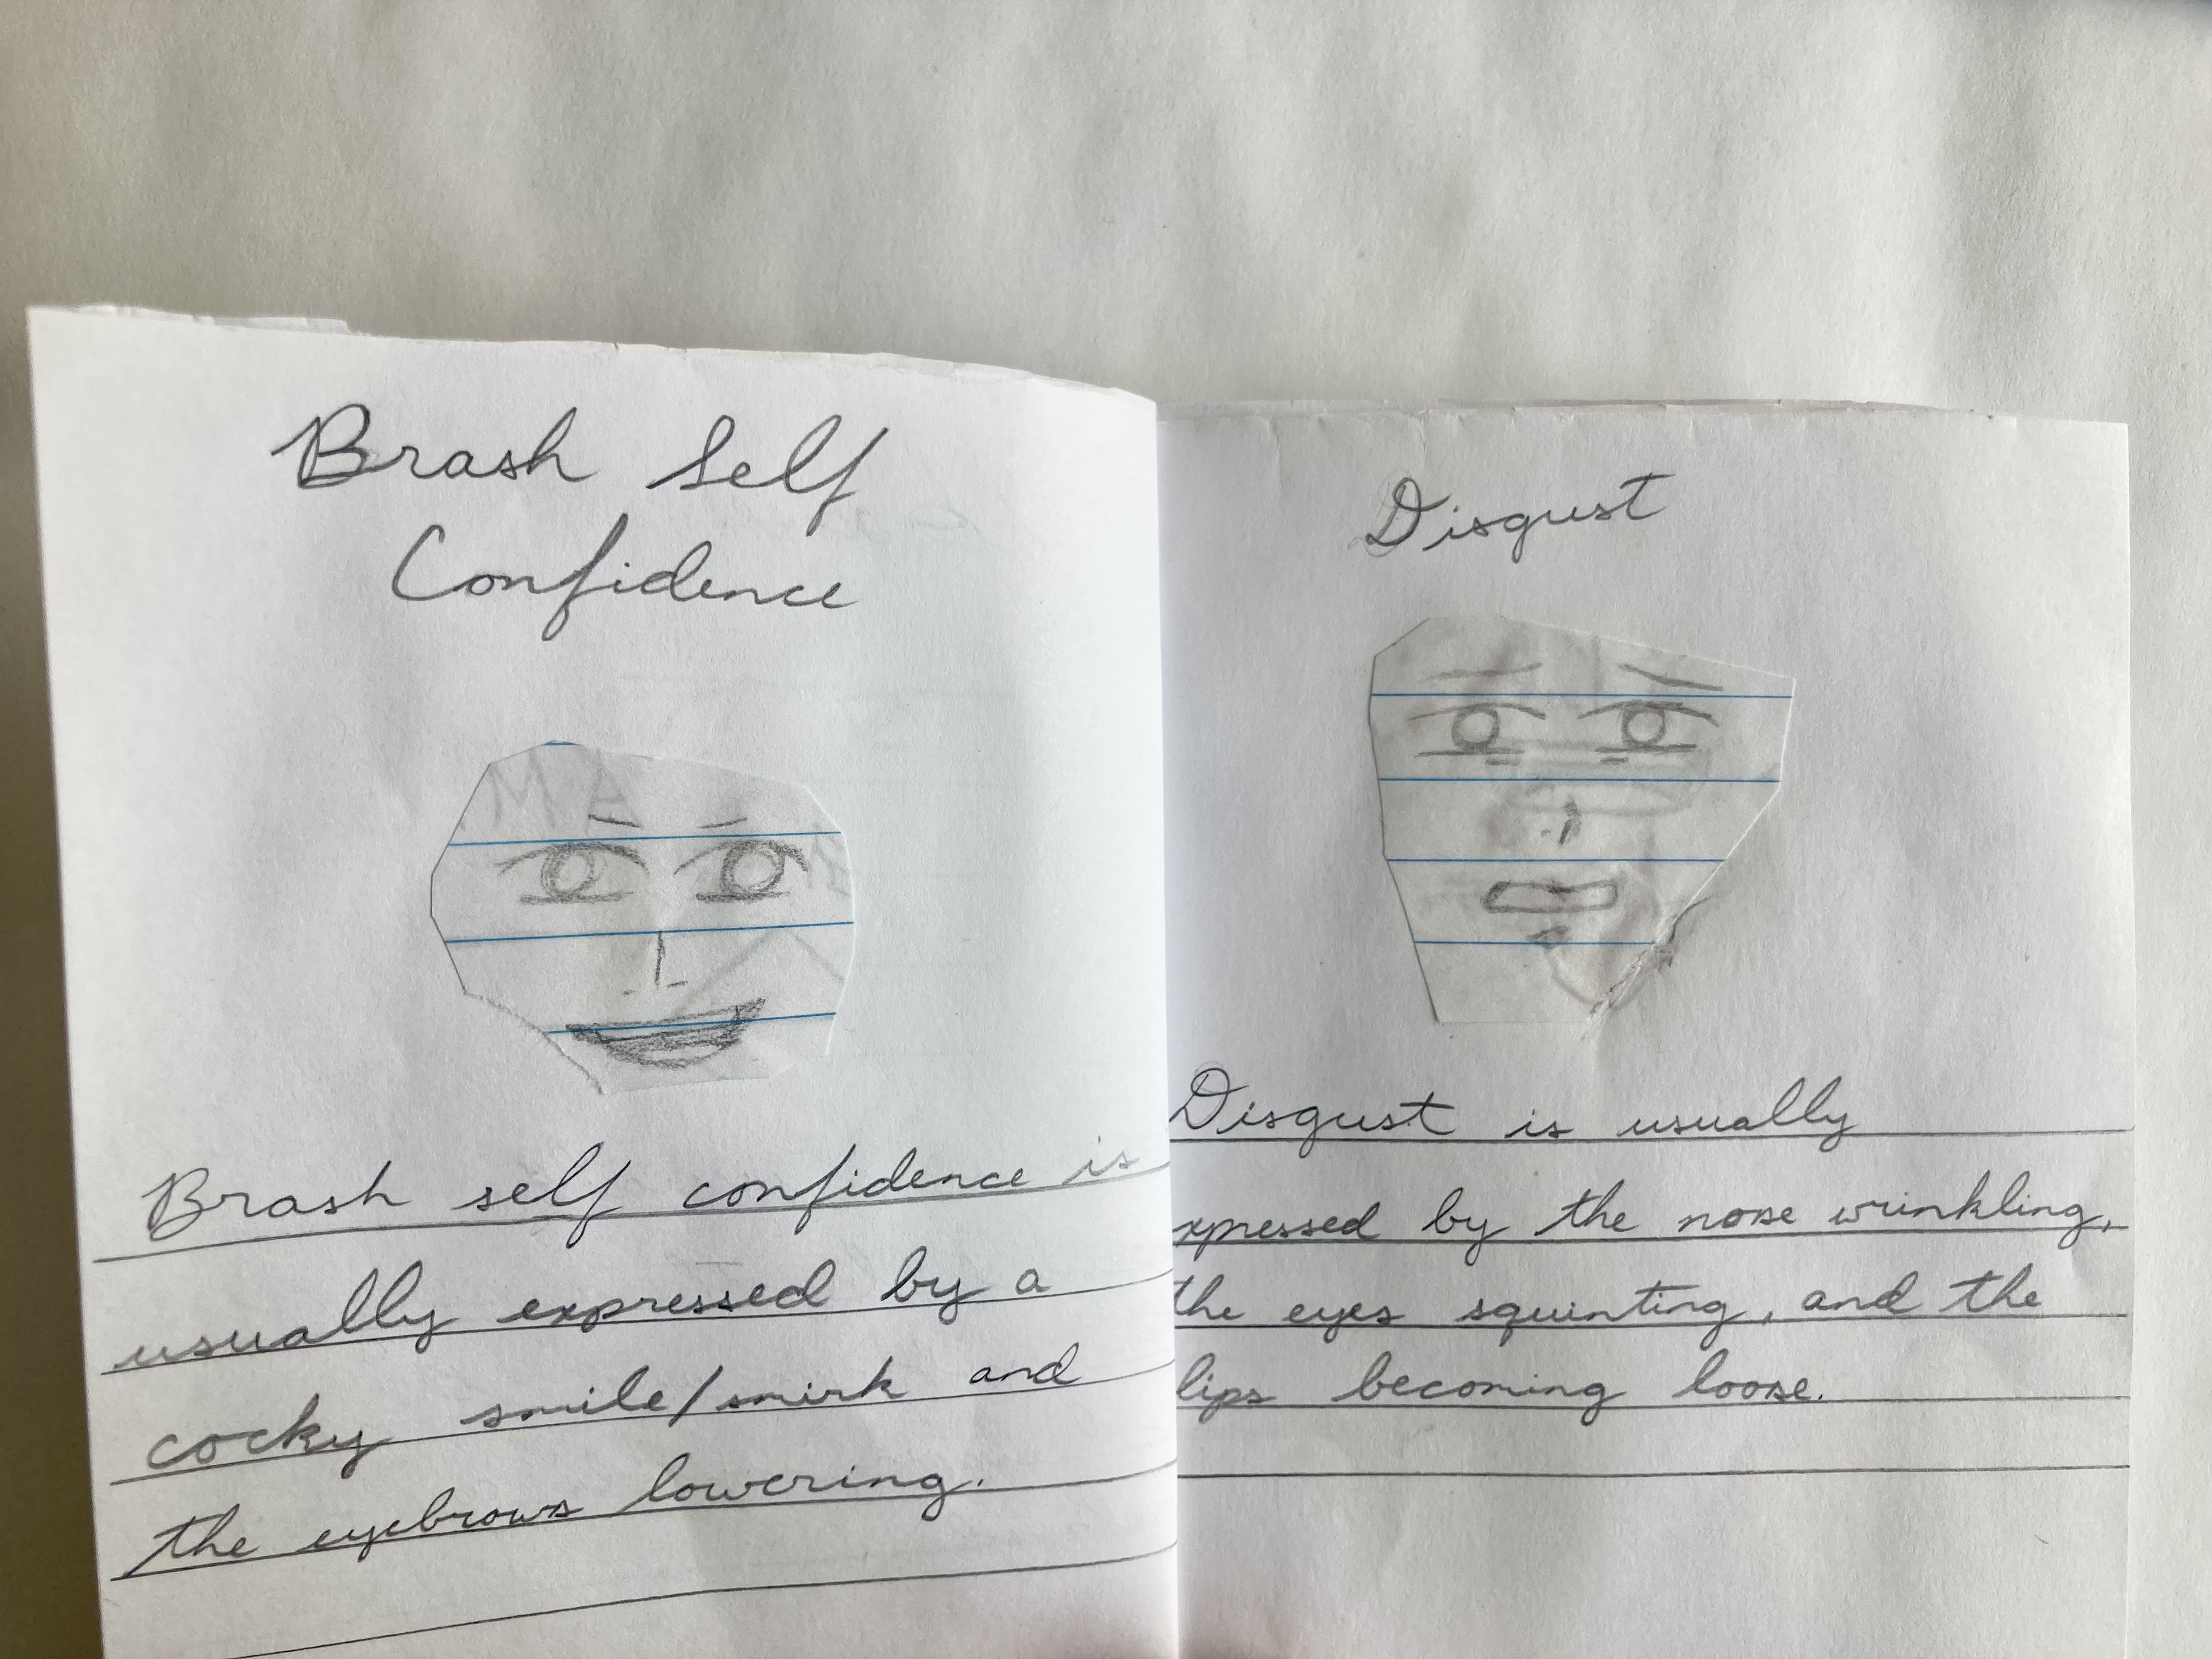 Brash Self
Confidence
MA
Brash self confidence is
usually expressed by a
cocky smile/smirk and
the eyebrows lowering.
Disgust
Disgust is usually
xpressed by the nose wrinkling,
the eyes squinting, and the
lips becoming loose.